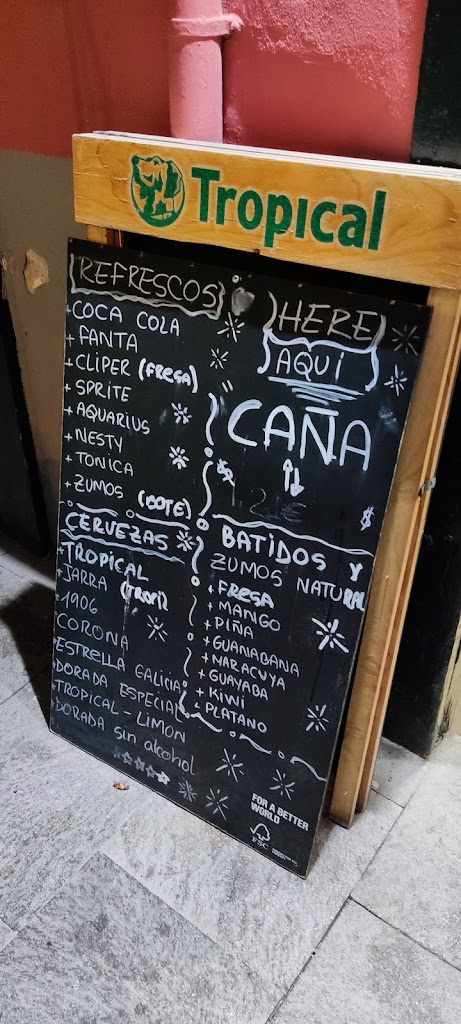 Tropical
REFRESCOS
+COCA COLA
+FANTA
+CLIPER (FRESA)
+SPRITE
+AQUARIUS
+NESTY
+TONICA
+ZUMOS (BOTE)
CERVEZAS
+TROPICAL
+JARRA (TROPI)
+1906
CORONA
ESTRELLA GALICIA
DORADA ESPECIAL
+TROPICAL - LIMON
DORADA sin alcohol
HERE
AQUI
CAÑA
$
$
BATIDOS Y
ZUMOS NATURAL
+FRESA
+MANGO
+PIÑA
+GUANABANA
+MARACUYA
+GUAYABA
+KIWI
+PLATANO
FOR A BETTER
WORLD
FSC